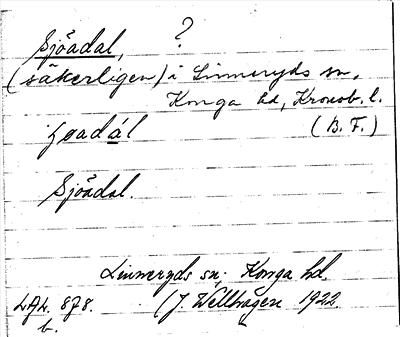 Sjöadal, ?
(säkerligen) i Linneryds sn,
Konga hd, Kronob. l.
(B. F.)
Sjöadal.
Linneryds sn; Konga hd.
(J. Wellhagen 1922
LAL. 878.
b.